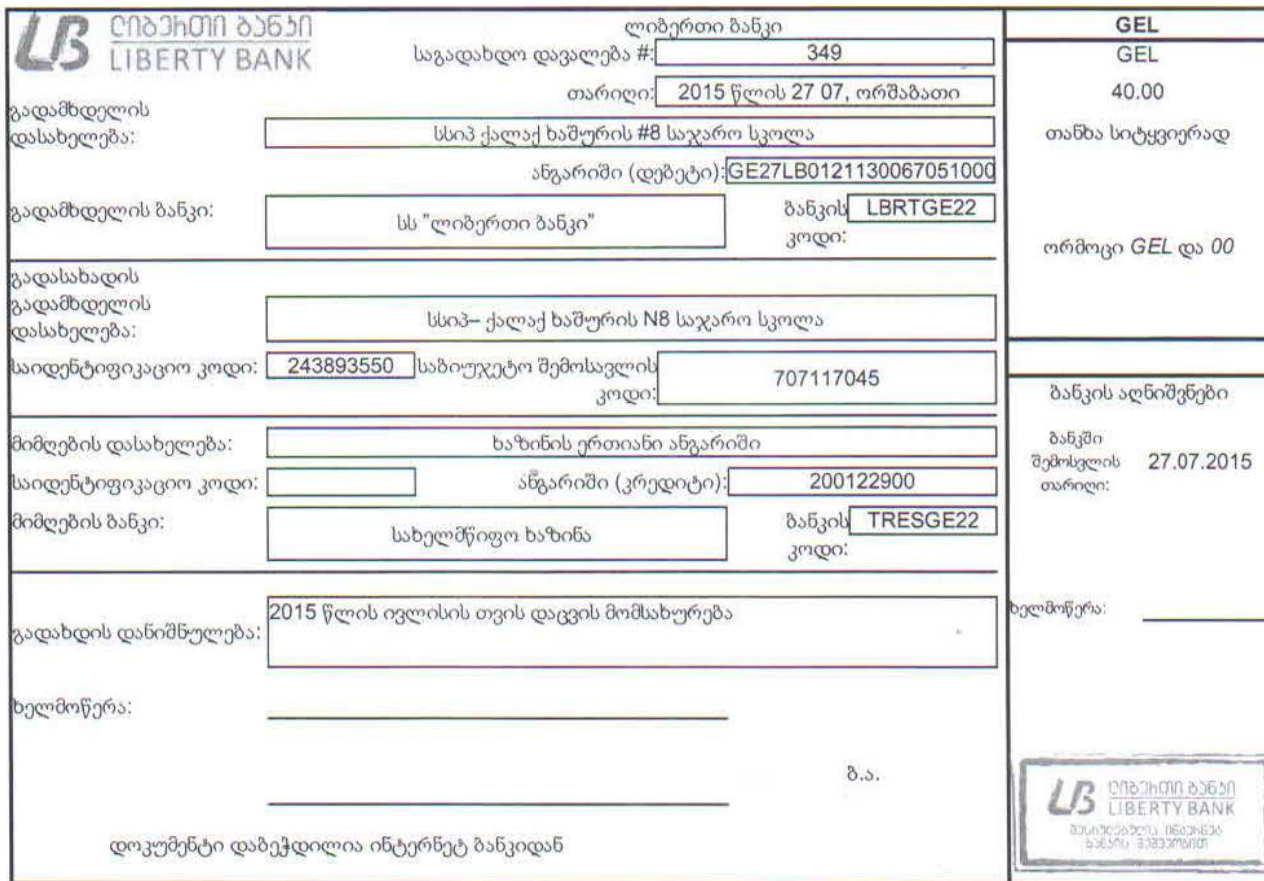 ლიბერთი ბანკი
LIBERTY BANK
ლიბერთი ბანკი
საგადახდო დავალება #: 349
თარიღი: 2015 წლის 27 07, ორშაბათი
გადამხდელის
დასახელება: სსიპ ქალაქ ხაშურის #8 საჯარო სკოლა
ანგარიში (დებეტი): GE27LB0121130067051000
გადამხდელის ბანკი: სს "ლიბერთი ბანკი" ბანკის LBRTGE22
კოდი:
გადასახადის
გადამხდელის
დასახელება: სსიპ– ქალაქ ხაშურის N8 საჯარო სკოლა
საიდენტიფიკაციო კოდი: 243893550 საბიუჯეტო შემოსავლის
კოდი: 707117045
მიმღების დასახელება: ხაზინის ერთიანი ანგარიში
საიდენტიფიკაციო კოდი: ანგარიში (კრედიტი): 200122900
მიმღების ბანკი: სახელმწიფო ხაზინა ბანკის TRESGE22
კოდი:
2015 წლის ივლისის თვის დაცვის მომსახურება
გადახდის დანიშნულება:
ხელმოწერა:
ბ.ა.
დოკუმენტი დაბეჭდილია ინტერნეტ ბანკიდან
GEL
GEL
40.00
თანხა სიტყვიერად
ორმოცი GEL და 00
ბანკის აღნიშვნები
ბანკში
შემოსვლის 27.07.2015
თარიღი:
ხელმოწერა:
ლიბერთი ბანკი
LIBERTY BANK
შესრულებულია ინტერნეტ
ბანკის მეშვეობით